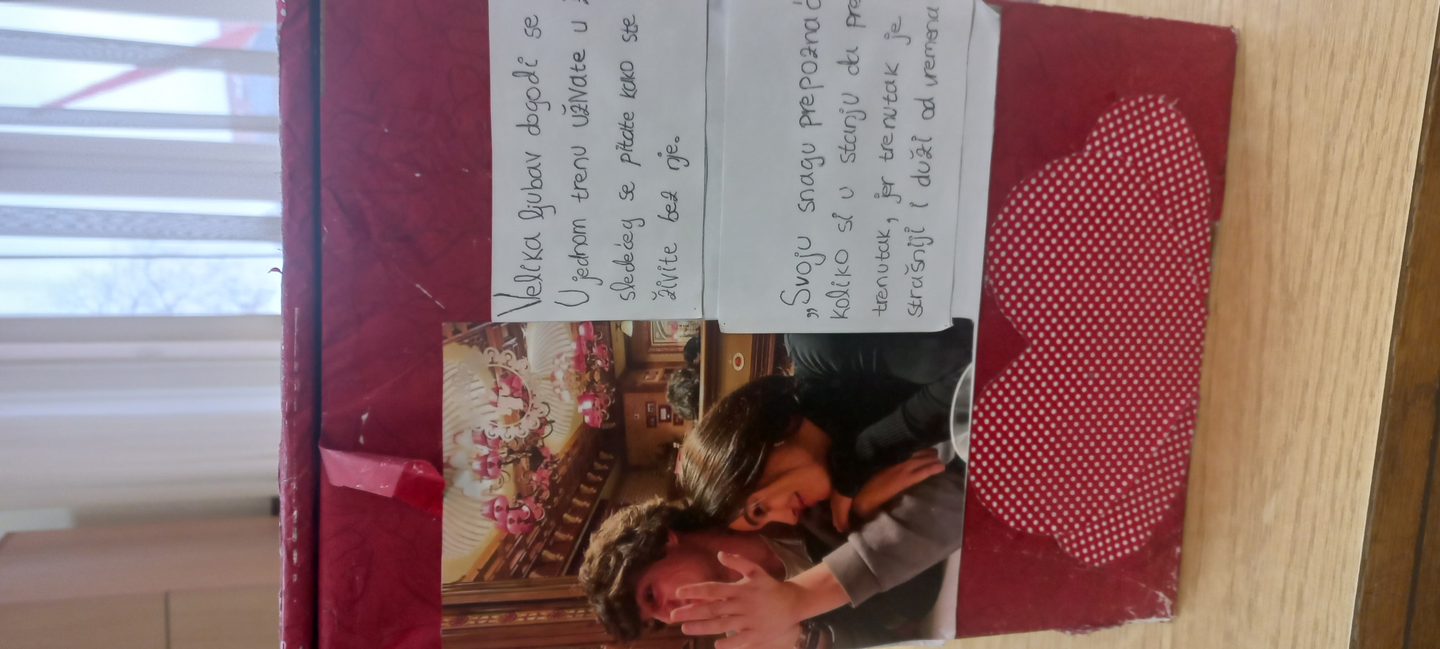 Velika ljubav dogodi se
U jednom trenu uživate u
sledećeg se pitate kako ste
živite bez nje.
„Svoju snagu prepoznać
koliko si u stanju da pre
trenutak, jer trenutak je
strašniji i duži od vremena